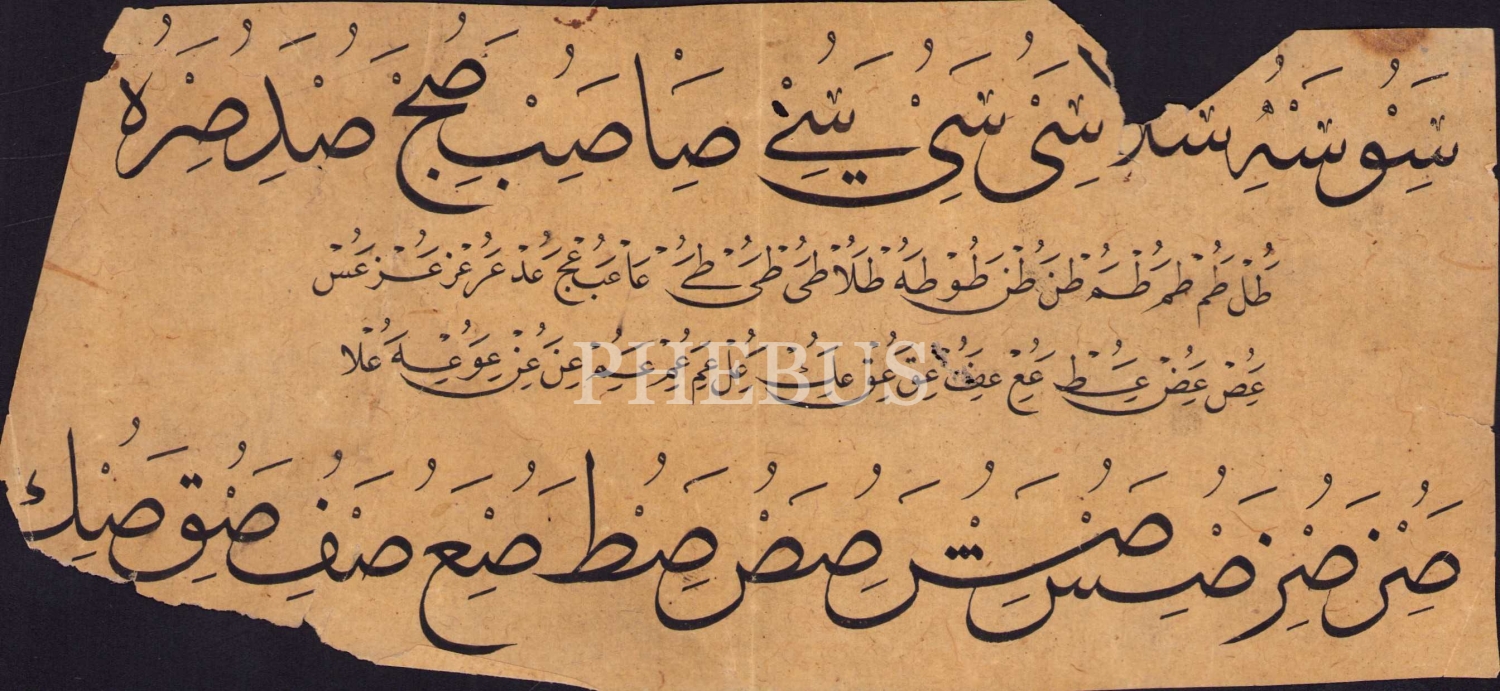 سو سه سلا سى سى سے صا صب صج صد صر
طل طم طم طم طن طن طو طه طلا طى طى طے عا عب عج عد عر عر عر عس
عص عص عط عع عف عق عق عك عل عم عم عم عن عن عو عه علا
PHEBUS
صر صر صس صش صص صط صع صف صق صك